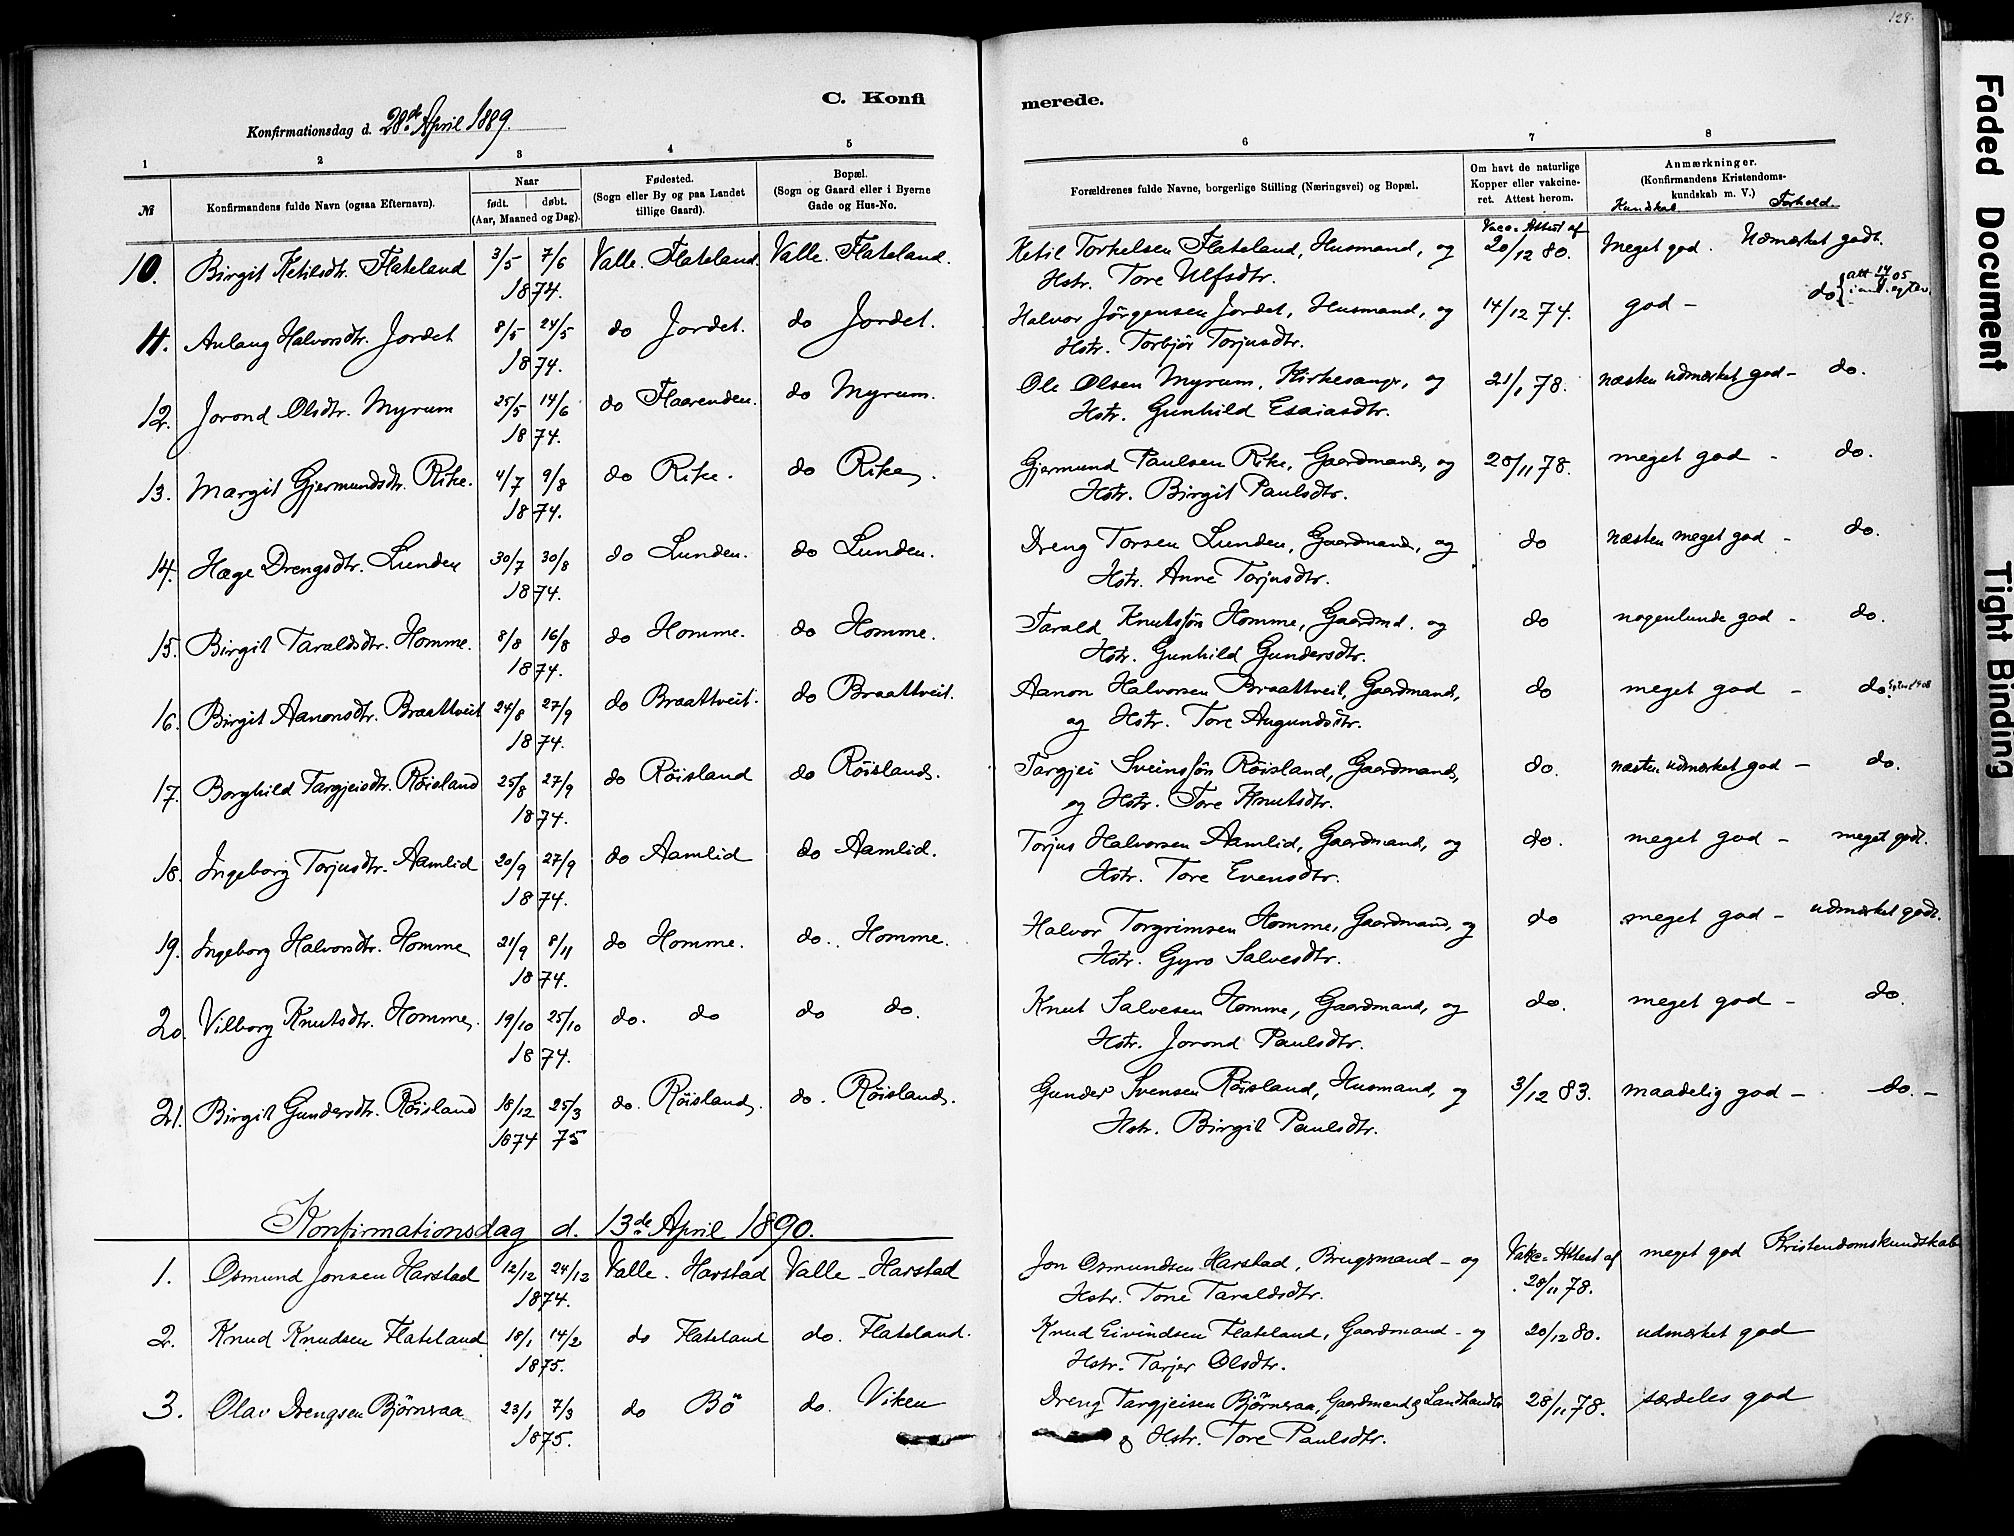 128.
C. Konfi merede.
Konfirmationsdag d. 28de April 1889.
1 2 3 4 5 6 7 8
№ Konfirmandens fulde Navn (ogsaa Efternavn). Naar født. døbt. (Aar, Maaned og Dag). Fødested. (Sogn eller By og paa Landet tillige Gaard). Bopæl. (Sogn og Gaard eller i Byerne Gade og Hus-No. Forældrenes fulde Navne, borgerlige Stilling (Næringsvei) og Bopæl. Om havt de naturlige Kopper eller vakcineret. Attest herom. Anmærkninger. (Konfirmandens Kristendomskundskab m. V.) Kundskab Forhold.
10. Birgit Ketilsdtr. Flateland 3/5 7/6 Valle. Flateland. Valle. Flateland. Ketil Torkelsen Flateland, Husmand, og Vacc. Attest af 20/12 80. Meget god. Udmærket godt.
1874. Hstr. Tore Ulfsdtr.
11. Aulaug Halvorsdtr. Jordet 8/5 24/5 do Jordet. do Jordet. Halvor Jörgensen Jordet, Husmand, og 14/12 74. god - do
1874. Hstr. Torbjör Torjusdtr.
12. Jorond Olsdtr. Myrum 25/5 14/6 do Flaarenden. do Myrum. Ole Olsen Myrum, Kirkesanger, og 21/1 78. næsten udmærket god - do.
1874. Hstr. Gunhild Esaiasdtr.
13. Margit Gjermundsdtr. Rike. 4/7 9/8 do Rike. do Rike. Gjermund Paulsen Rike, Gaardmand, og 28/11 78. meget god - do.
1874. Hstr. Birgit Paulsdtr.
14. Hæge Drengsdtr. Lunden 30/7 30/8 do Lunden. do Lunden. Dreng Torsen Lunden, Gaardmand, og do næsten meget god - do.
1874. Hstr. Anne Torjusdtr.
15. Birgit Taraldsdtr. Homme. 8/8 16/8 do Homme. do Homme. Tarald Knutsön Homme, Gaardmd. og do nogenlunde god - do.
1874. Hstr. Gunhild Gundersdtr.
16. Birgit Aanonsdtr. Braattveit 24/8 27/9 do Braattveit. do Braattveit. Aanon Halvorsen Braattveit, Gaardmand, do meget god - do.
1874. og Hstr. Tore Augundsdtr.
17. Borghild Targjeisdtr. Röisland 25/8 27/9 do Röisland do Röisland. Targjei Sveinssön Röisland, Gaardmand, do. næsten udmærket god - do.
1874. og Hstr. Tore Knutsdtr.
18. Ingeborg Torjusdtr. Aamlid 20/9 27/9 do Aamlid do Aamlid. Torjus Halvorsen Aamlid, Gaardmand, og do. meget god - meget godt.
1874. Hstr. Tore Evensdtr.
19. Ingeborg Halvorsdtr. Homme 21/9 8/11 do Homme. do. Homme. Halvor Torgrimsen Homme, Gaardmand, og do meget god - udmærket godt.
1874. Hstr. Gyro Salvesdtr.
20. Vilborg Knutsdtr. Homme. 19/10 25/10 do. do do do. Knut Salvesen Homme, Gaardmand, og do. meget god - do.
1874. Hstr. Jorond Paulsdtr.
21. Birgit Gundersdtr. Röisland 18/12 25/3 do. Röisland. do. Röisland. Gunder Svensen Röisland, Husmand, og 3/12 83. maadelig god - do. -
1874 75 Hstr. Birgit Paulsdtr.
Konfirmationsdag d. 13de April 1890.
1. Osmund Jonsen Harstad 12/12 24/12 Valle. Harstad Valle - Harstad Jon Osmundsen Harstad, Brugsmand - og Vakc. Attest af meget god Kristendomskundskab
1874. Hstr. Tone Taraldsdtr. 28/11 78.
2. Knud Knudsen Flateland 18/1 14/2 do Flateland do. Flateland. Knud Eivindsen Flateland, Gaardmand - og 20/12 80. udmærket god
1875. Hstr. Tarjer Olsdtr.
3. Olav Drengsen Björnsaa 23/1 7/3 do Bö do. Viken Dreng Targjeisen Björnsaa, Gaardmand og Landhandler 28/11 78. særdeles god
1875. og Hstr. Tore Paulsdtr.
Faded Document
Tight Binding